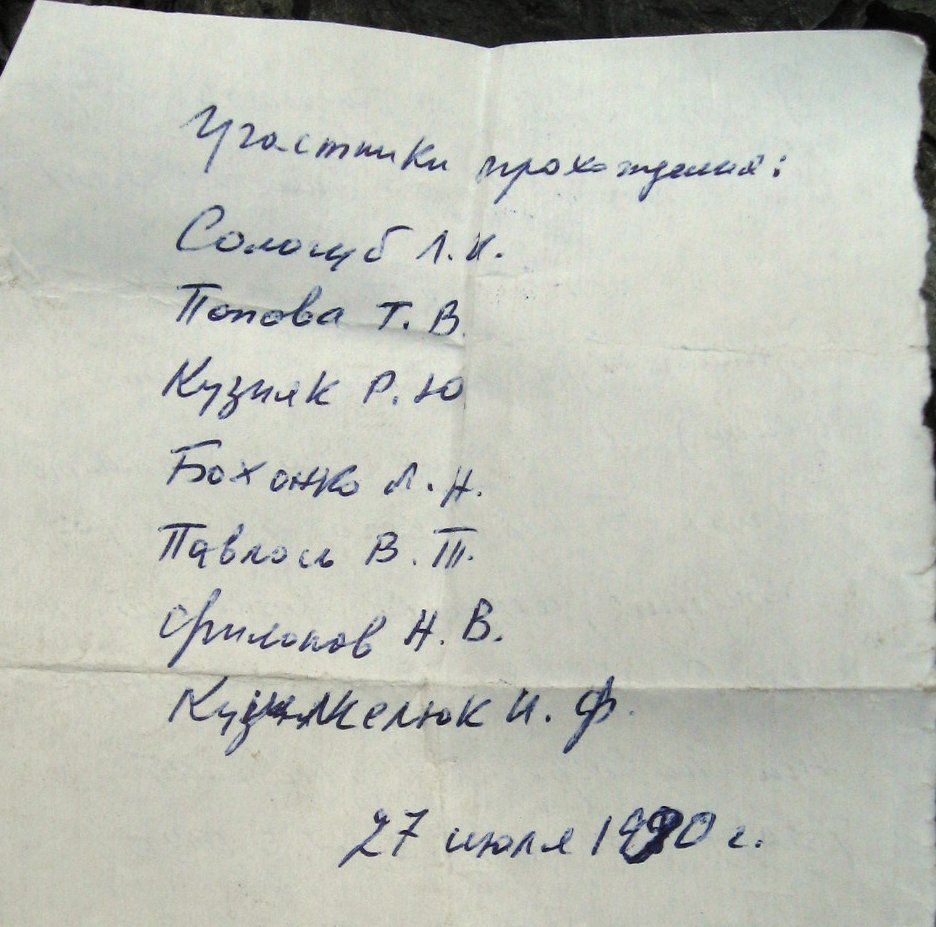 Участники прохождения:
Сологуб Л. К.
Попова Т. В.
Кузияк Р. Ю
Бохонко Л. Н.
Павлось В. П.
Филонов Н. В.
И. Ф.
27 июля 1990 г.